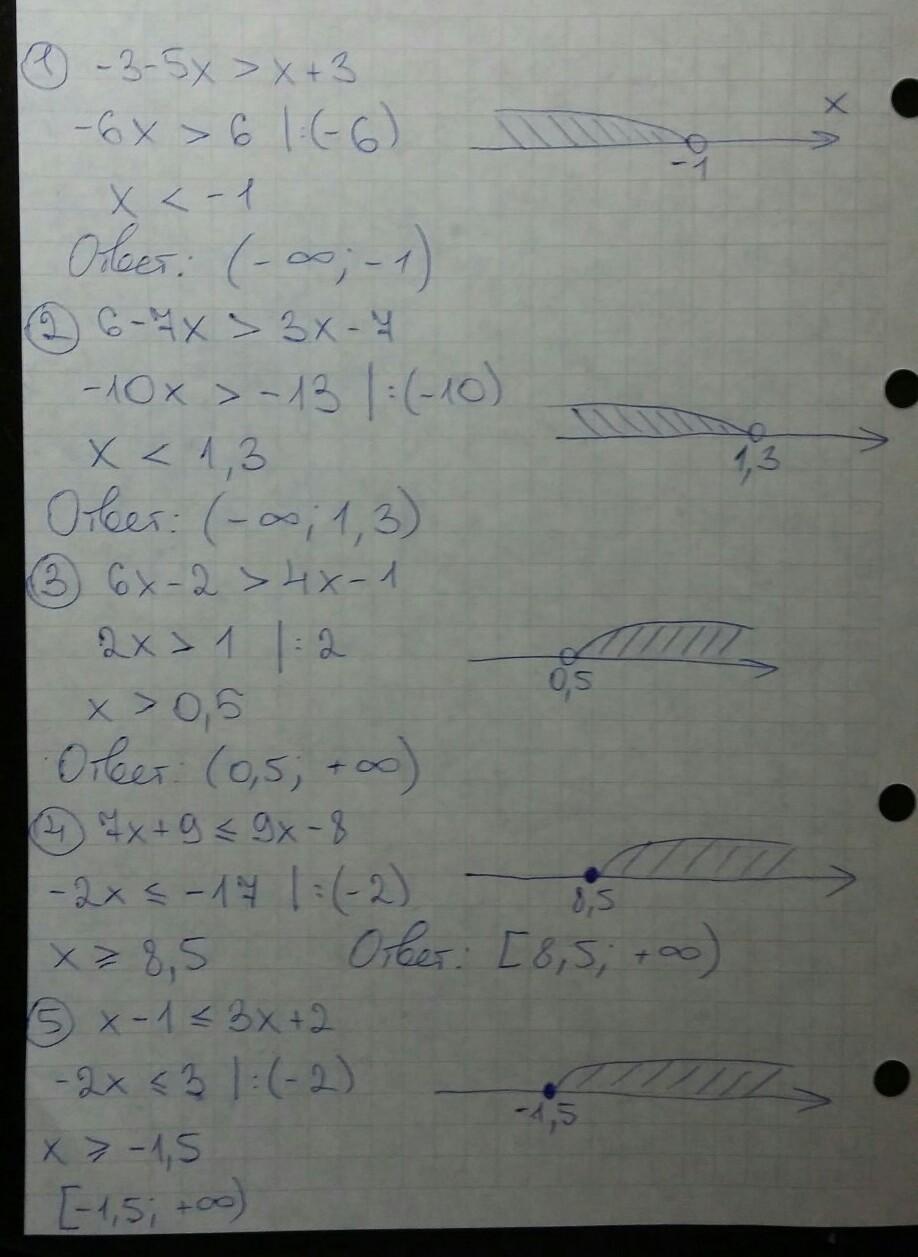 ① -3-5x > x+3
-6x > 6 |:(-6)
x
-1
x < -1
Ответ: (-∞; -1)
② 6-7x > 3x-7
-10x > -13 |:(-10)
x < 1,3
1,3
Ответ: (-∞; 1,3)
③ 6x-2 > 4x-1
2x > 1 |:2
0,5
x > 0,5
Ответ: (0,5; +∞)
④ 7x+9 ≤ 9x-8
-2x ≤ -17 |:(-2)
8,5
x ≥ 8,5 Ответ: [8,5; +∞)
⑤ x-1 ≤ 3x+2
-2x ≤ 3 |:(-2)
-1,5
x ≥ -1,5
[-1,5; +∞)